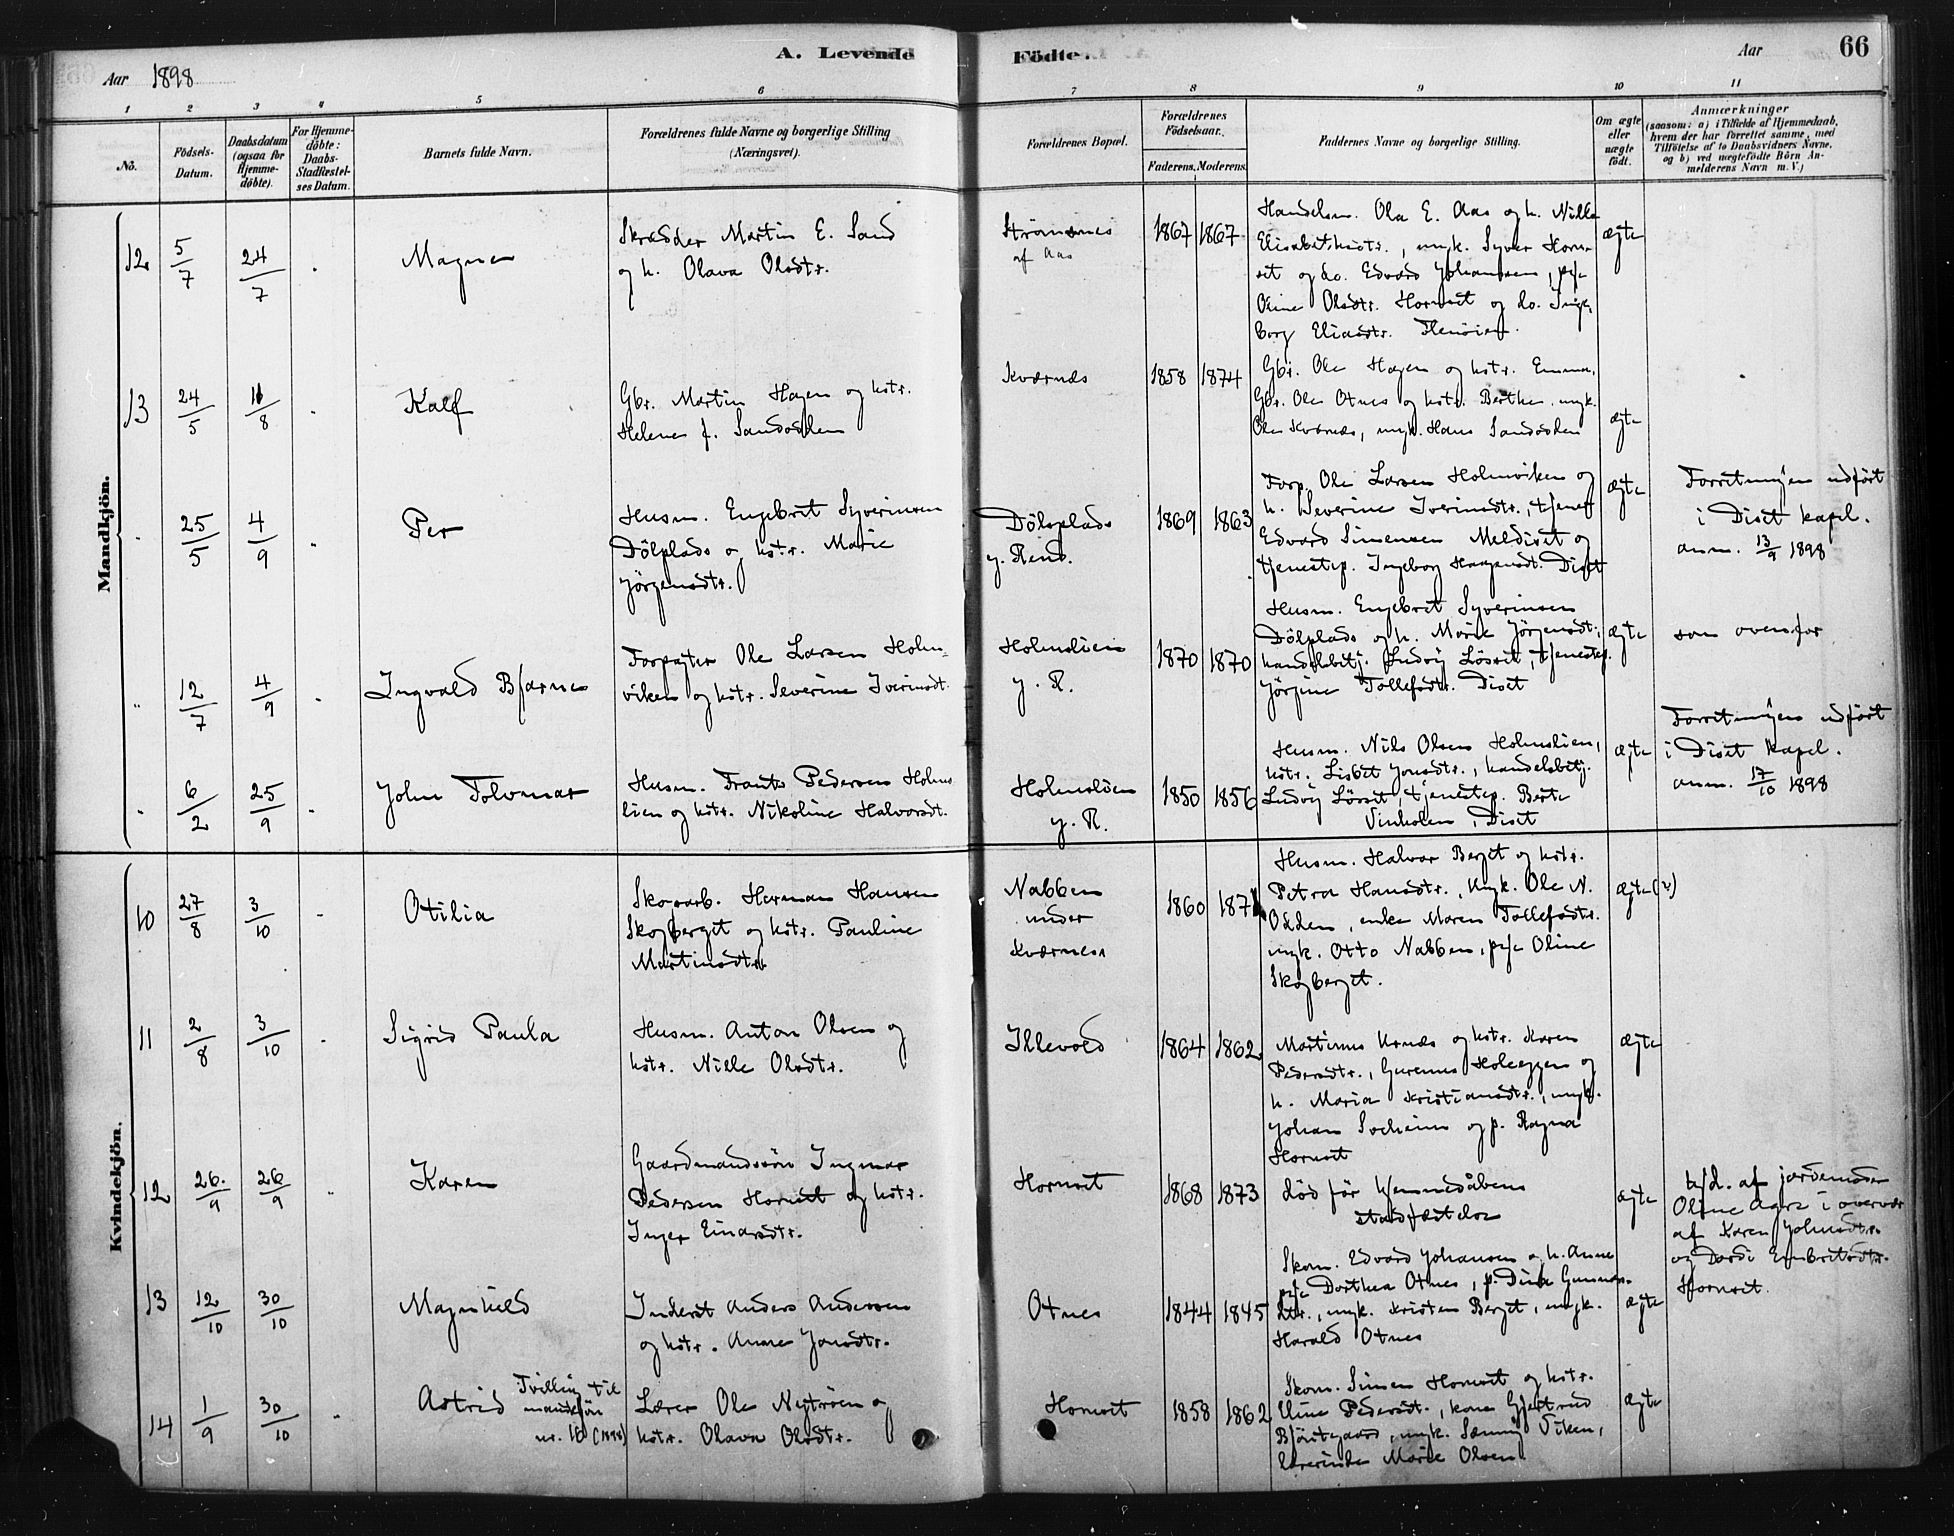 A. Levende Födte.
Aar 1898
Aar 66
1 2 3 4 5 6 7 8 9 10 11
No.
Födsels-Datum.
Daabsdatum (ogsaa for Hjemme-döbte).
For Hjemme-döbte: Daabs-Stadfæstel-ses Datum.
Barnets fulde Navn.
Forældrenes fulde Navne og borgerlige Stilling (Næringsvei).
Forældrenes Bopæl.
Forældrenes Födselsaar.
Faderens. Moderens.
Faddernes Navne og borgerlige Stilling.
Om ægte eller uægte födt.
Anmærkninger
(saasom: a) i Tilfælde af Hjemmedaab,
hvem der har forrettet samme, med
Tilföielse af to Daabsvidners Navne,
og b) ved uægtefödte Börn An-
melderens Navn m. V.)
Mandkjön.
12 5/7 24/7 Magne
Skrædder Martin E. Sand
og h. Olava Olsdtr.
Strömsnes
af Aas
1867 1867
Handelsm. Ola E. Aas og h. Nilla
Elisabethsdtr., ungk. Syver Horn-
set og do. Edvard Johansen, pige
Oline Olsdtr. Hornset og do. Inge-
borg Eliasdtr.
ægte
13 24/5 11/8 Kalf
Gbr. Martin Hagen og hstr.
Helene f. Sandodden
Kværnes
1858 1874
Gbr. Ole Hagen og hstr. Emma,
Gbr. Ole Otnes og hstr. Berthe, ungk.
Ole Kværnes, ungk. Hans Sandodden
ægte
25/5 4/9 Per
Husm. Engebret Syverinsen
Dölplads og hstr. Marie
Jörgensdtr.
Dölsplads
y. Rend.
1869 1863
Forp. Ole Larsen Holmviken og
h. Severine Iverinsdtr., tjenes
Edvard Simensen Meldiset og
tjenestep. Ingeborg Haagensdt. Diset
ægte
Forretningen udfört
i Diset kapel.
anm. 13/9 1898
" 12/7 4/9 Ingvald Bjarne
Forpagter Ole Larsen Holm-
viken og hstr. Severine Iverinsdt.
Holmslien
y. R.
1870 1870
Husm. Engebret Syverinsen
Dölplads og h. Marie Jörgensdt.,
handelsbetj. Ludvig Lösset, tjenestep.
Jörgine Tollefsdtr. Diset
ægte
som ovenfor
6/2 25/9 John Tolvmar
Husm. Frants Pedersen Holms-
lien og hstr. Nikoline Halvorsdt.
Holmslien
y. R.
1850 1856
Husm. Nils Olsen Holmslien,
hstr. Lisbet Jonsdtr., handelsbetj.
Ludvig Lösset, tjenestep. Berte
Vinholen, Diset
ægte
Forretningen udfört
i Diset kapel.
anm. 17/10 1898
Kvindekjön.
10 27/8 3/10 Otilia
Skogarb. Herman Hansen
Skogberget og hstr. Pauline
Martinsdtr.
Nabben
under
Kværnes
1860 1871
Husm. Halvor Berget og hstr.
Petra Hansdtr., Ungk. Ole N.
Odden, enke Maren Tollefsdtr.
ungk. Otto Nabben, pige Oline
Skogberget.
ægte (2)
11 2/8 3/10 Sigrid Paula
Husm. Anton Olsen og
hstr. Nille Olsdtr.
Illevold
1864 1862
Martinus Kræs og hstr. Karen
Pedersdtr., Gurenus Holeggen og
h. Maria Kristiansdtr., ungk.
Johan Socheim og p. Ragna
Hornset
ægte
12 26/9 26/9 " Karen
Gaardmandssön Ingmar
Pedersen Hornset og hstr.
Inger Einarsdtr.
Hornset
1868 1873
död för hjemmedåbens
stadfæstelse
ægte
hjd. af jordemoder
Oline Agre i overvær
af Karen Johnsdtr.
og Dordi Embretsdtr.
Hornset.
13 12/10 30/10 Magnhild
Inderst Anders Andersen
og hstr. Anne Jonsdtr.
Otnes
1844 1845
Skom. Edvard Johansen og h. Anne
pige Dorthea Otnes, p. Dina Gunnars-
dtr., ungk. Kristen Berget, ungk.
Harald Otnes
ægte
14 1/9 30/10 " Astrid
Tvilling til
mandkjön
nr. 16 (1898)
Lærer Ole Nytröen og
hstr. Olava Olsdtr.
Hornset
1858 1862
Skom. Simen Hornset og hstr.
Eline Pedersdt., kone Gjertrud
Björtegaard, ungk. Sæming Viken,
lærerinde Marie Olsen
ægte